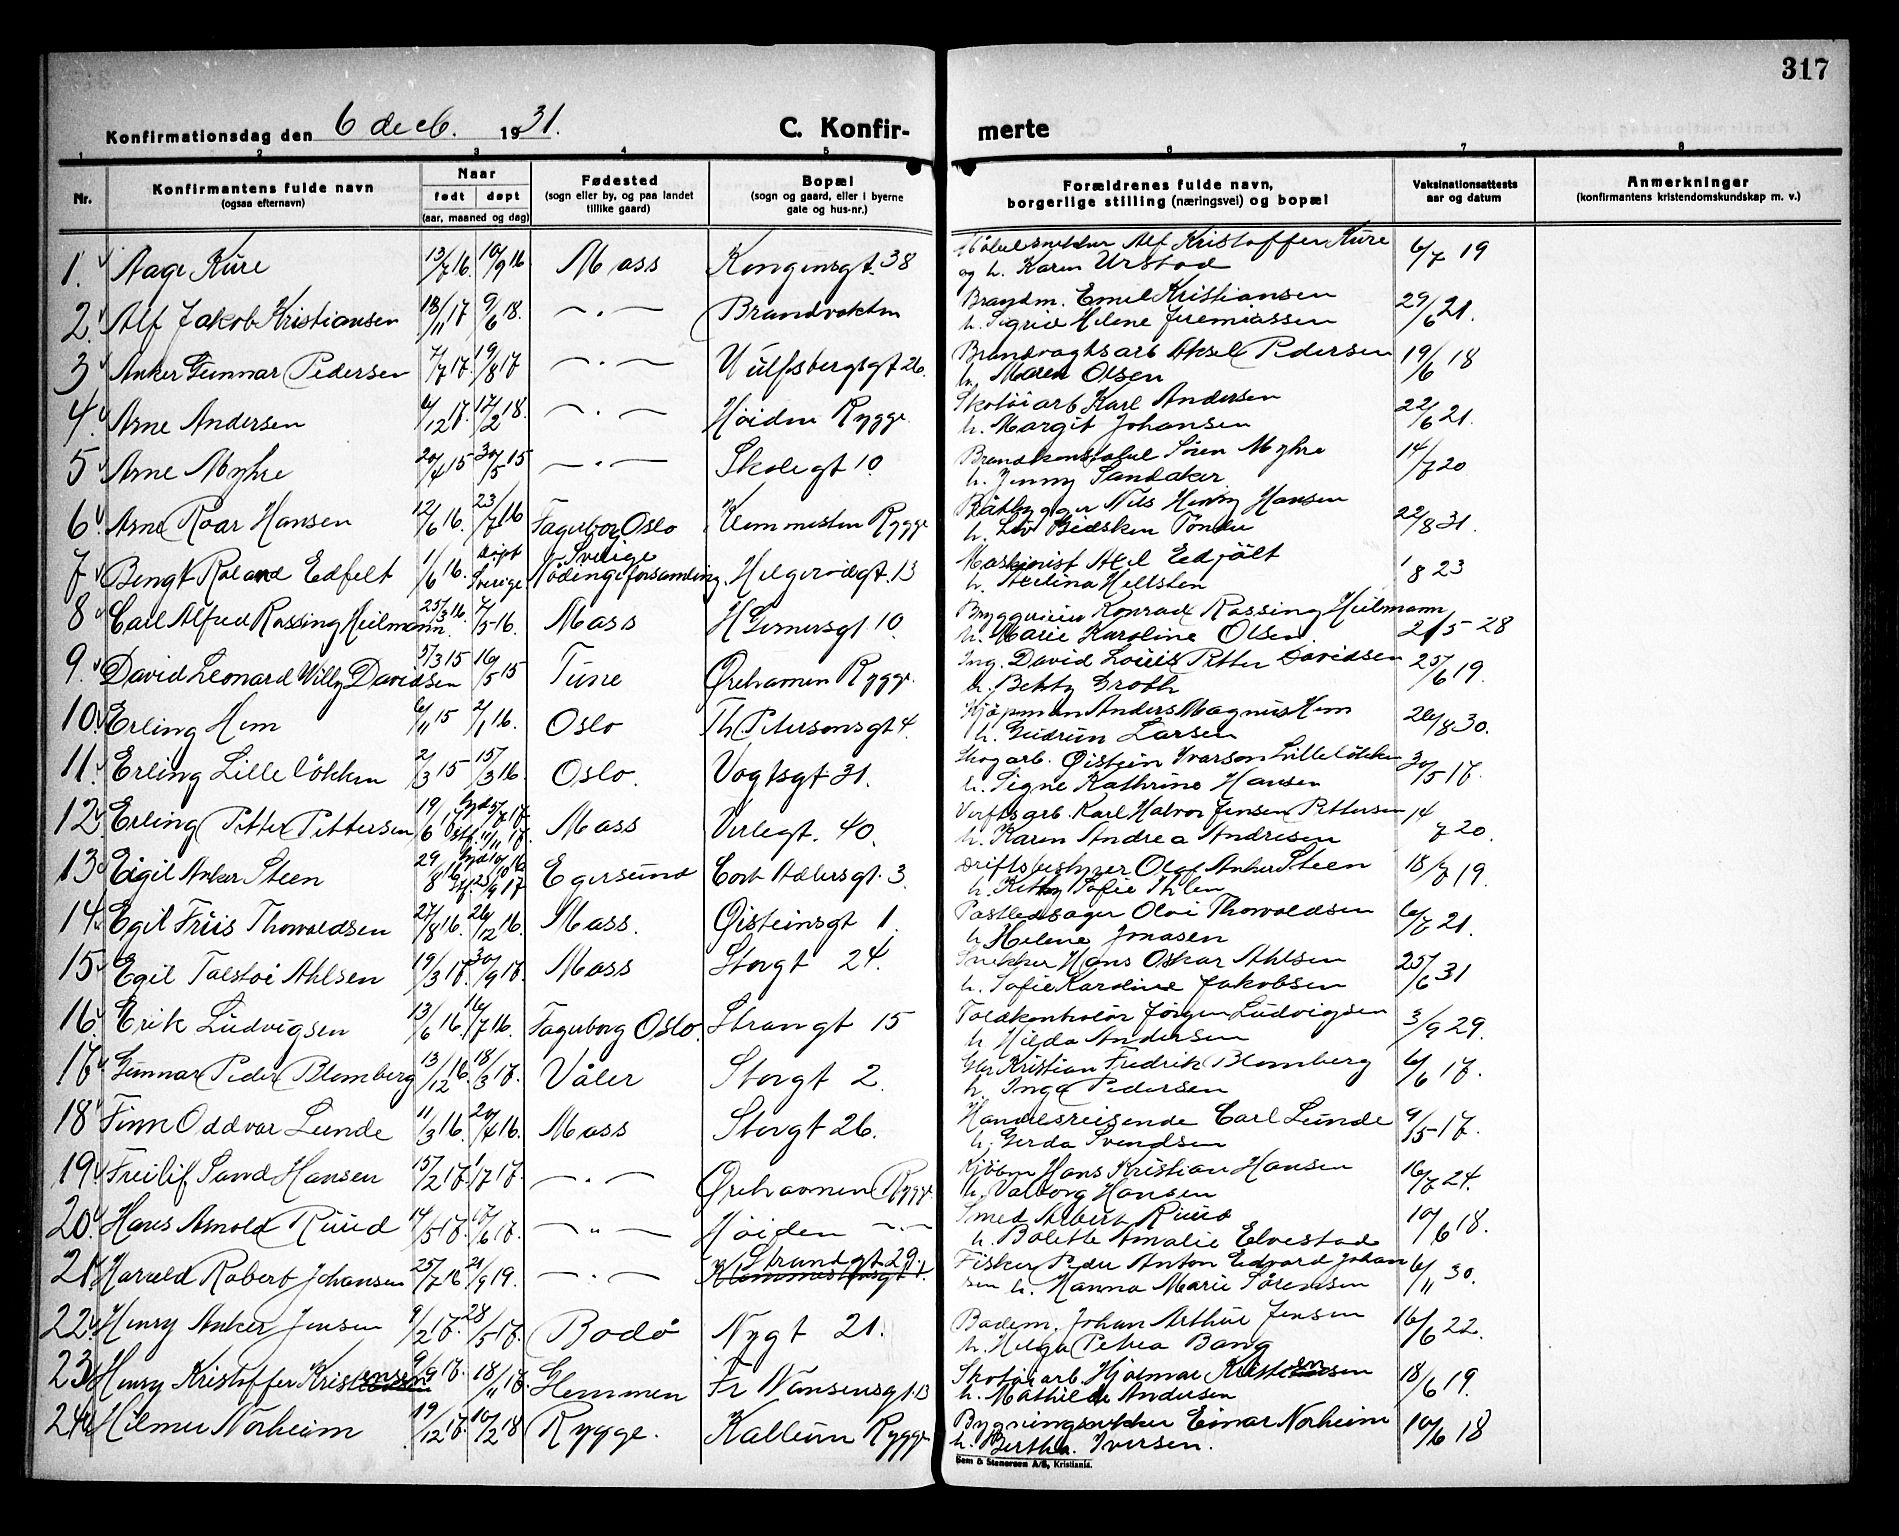 317
Konfirmationsdag den 6 decb. 1931.
C. Konfir- merte
1 2 3 4 5 6 7 8
Nr.
Konfirmantens fulde navn
(ogsaa efternavn)
Naar
født døpt
(aar, maaned og dag)
Fødested
(sogn eller by, og paa landet
tillike gaard)
Bopæl
(sogn og gaard, eller i byerne
gate og hus-nr.)
Forældrenes fulde navn,
borgerlige stilling (næringsvei) og bopæl
Vaksinationsattests
aar og datum
Anmerkninger
(konfirmantens kristendomskundskap m. v.)
1. Aage Kure 13/7 16. 10/9 16 Moss Kongensgt. 38 Møbelsnekker Alf Kristoffer Kure 6/7 19
og h. Karen Urstad
2. Alf Jakob Kristiansen 18/11 17 9/6 18. —"— Brandvakten Brandm. Emil Kristiansen 29/6 21.
h. Sigrid Helene Jeremiassen
3 Anker Gunnar Pedersen 7/7 17. 19/8 17 —"— Wulfsbergsgt 26. Brandvagtsarb Aksel Pedersen 19/6 18
h. Maren Olsen
4. Arne Andersen 6/12 17. 17/2 18. —"— Høiden Rygge Skotøiarb Karl Andersen 22/6 21.
h. Margit Johansen
5 Arne Myhre 20/4 15 30/5 15 —"— Skolegt 10. Brandkonstabel Søren Myhre 14/7 20
h. Jenny Sandaker
6. Arne Roar Hansen 12/6 16. 23/7 16 Fagerborg Oslo Klommesten Rygge Båtbygger Nils Henry Hansen 22/8 31.
h. Liv Tønder
7. Bengt Roland Edfelt 1/6 16. døpt Sverige Sverige Nødinge forsamling. Helgerødgt. 13 Maskinist Axel Edfält 8 23
h. Hellsten
8 Carl Alfred Rossing Heilmann. 25/3 16. 7/5 16. Moss H Gernersgt 10. Bryggerieier Konrad Rossing Heilmann 21 5 28
h. Marie Karoline Olsen.
9. David Leonard Willy Davidsen 5/3 15 16/5 15 Tune Ørehavnen Rygge. Ing. David Louis Petter Davidsen 25/6 19.
h. Betsty Groth
10. Erling Hem 6/11 15 2/1 16. Oslo Th. Petersonsgt 4. Kjøpman Anders Magnus Hem 26/8 30.
h. Gudrun Larsen
11. Erling Lilleløkken 2/3 15 15/3 16. Oslo. Vogtsgt 31. Skogarb. Øistein Ivarson Lilleløkken 30/5 17.
h. Signe Kathrine Hansen
12. Erling Petter Pettersen 19/6 17 hjd 5/7 17. Stf. 11/11 17. Moss Verlegt. 40. Verftsarb. Karl Halvor Jensen Pettersen 14/7 20.
h. Karen Andrea Andresen
13. Eigil Anker Steen 29/8 16 hjd 10/10 16 Stf. 23/9 17 Egersund Cort Adelersgt. 3. Driftsbestyrer Olaf Anker Steen 18/7 19.
h. Kitty Sofie Thlen
14. Egil Friis Thorvaldsen 27/8 16. 26/12 16. Moss. Øisteinsgt 1. Postledsager Olai Thorvaldsen 6/7 21.
h. Helene Jonasen
15. Egil Tolstoi Ahlsen 19/3 17. 30/9 17. Moss Storgt 24. Snekker Hans Oskar Ahlsen 25/6 31
h. Sofie Karoline Jakobsen
16. Erik Ludvigsen 13/6 16. 16/7 16. Fagerborg Oslo. Strangt 15 Toldkontrolør Jørgen Ludvigsen 3/9 29.
h. Hilda Andersen
17. Gunnar Peder Blomberg 13/12 16. 18/3 17. Våler Storgt 2. Kristian Fredrik Blomberg 6/6 17.
h. Inga Pedersen
18. Finn Oddvar Lunde 11/3 16. 20/4 16. Moss Storgt 26. Handelsreisende Carl Lunde 9/5 17.
h. Gerda Svendsen
19. Freilif Sand Hansen 15/2 17. 1/7 17. —"— Ørehavnen Rygge Kjøbm Hans Kristian Hansen 16/7 24.
h. Valborg Hansen
20. Hans Arnold Ruud 14/5 17. 17/6 17. —"— Høiden —"— Smed Albert Ruud 10/6 18.
h. Bolette Amalie Elvestad
21. Harald Robert Johansen 25/7 16 21/9 19. —"— Strandgt 29. Fisker Peder Anton Edvard Johan 6/11 30.
sen h. Hanna Marie Sørensen
22. Henry Anker Jensen 9/2 17. 28/5 17. Bodø Nygt 21. Badem. Johan Arthur Jensen 16/6 22.
h. Helga Petrea Bang
23. Henry Kristoffer Kristensen 9/9 17. 18/11 17. Glemmen Fr Nansensgt. 13 Skotøiarb. Hjalmar Kristensen 18/6 19.
h. Mathilde Andersen
24. Hilmer Norheim 19/12 17. 10/2 18 Rygge. Kallum Rygge Bygningsnekker Einar Norheim 10/6 18
h. Bertha Iversen.
Sem & Stenersen A/S, Kristiania.